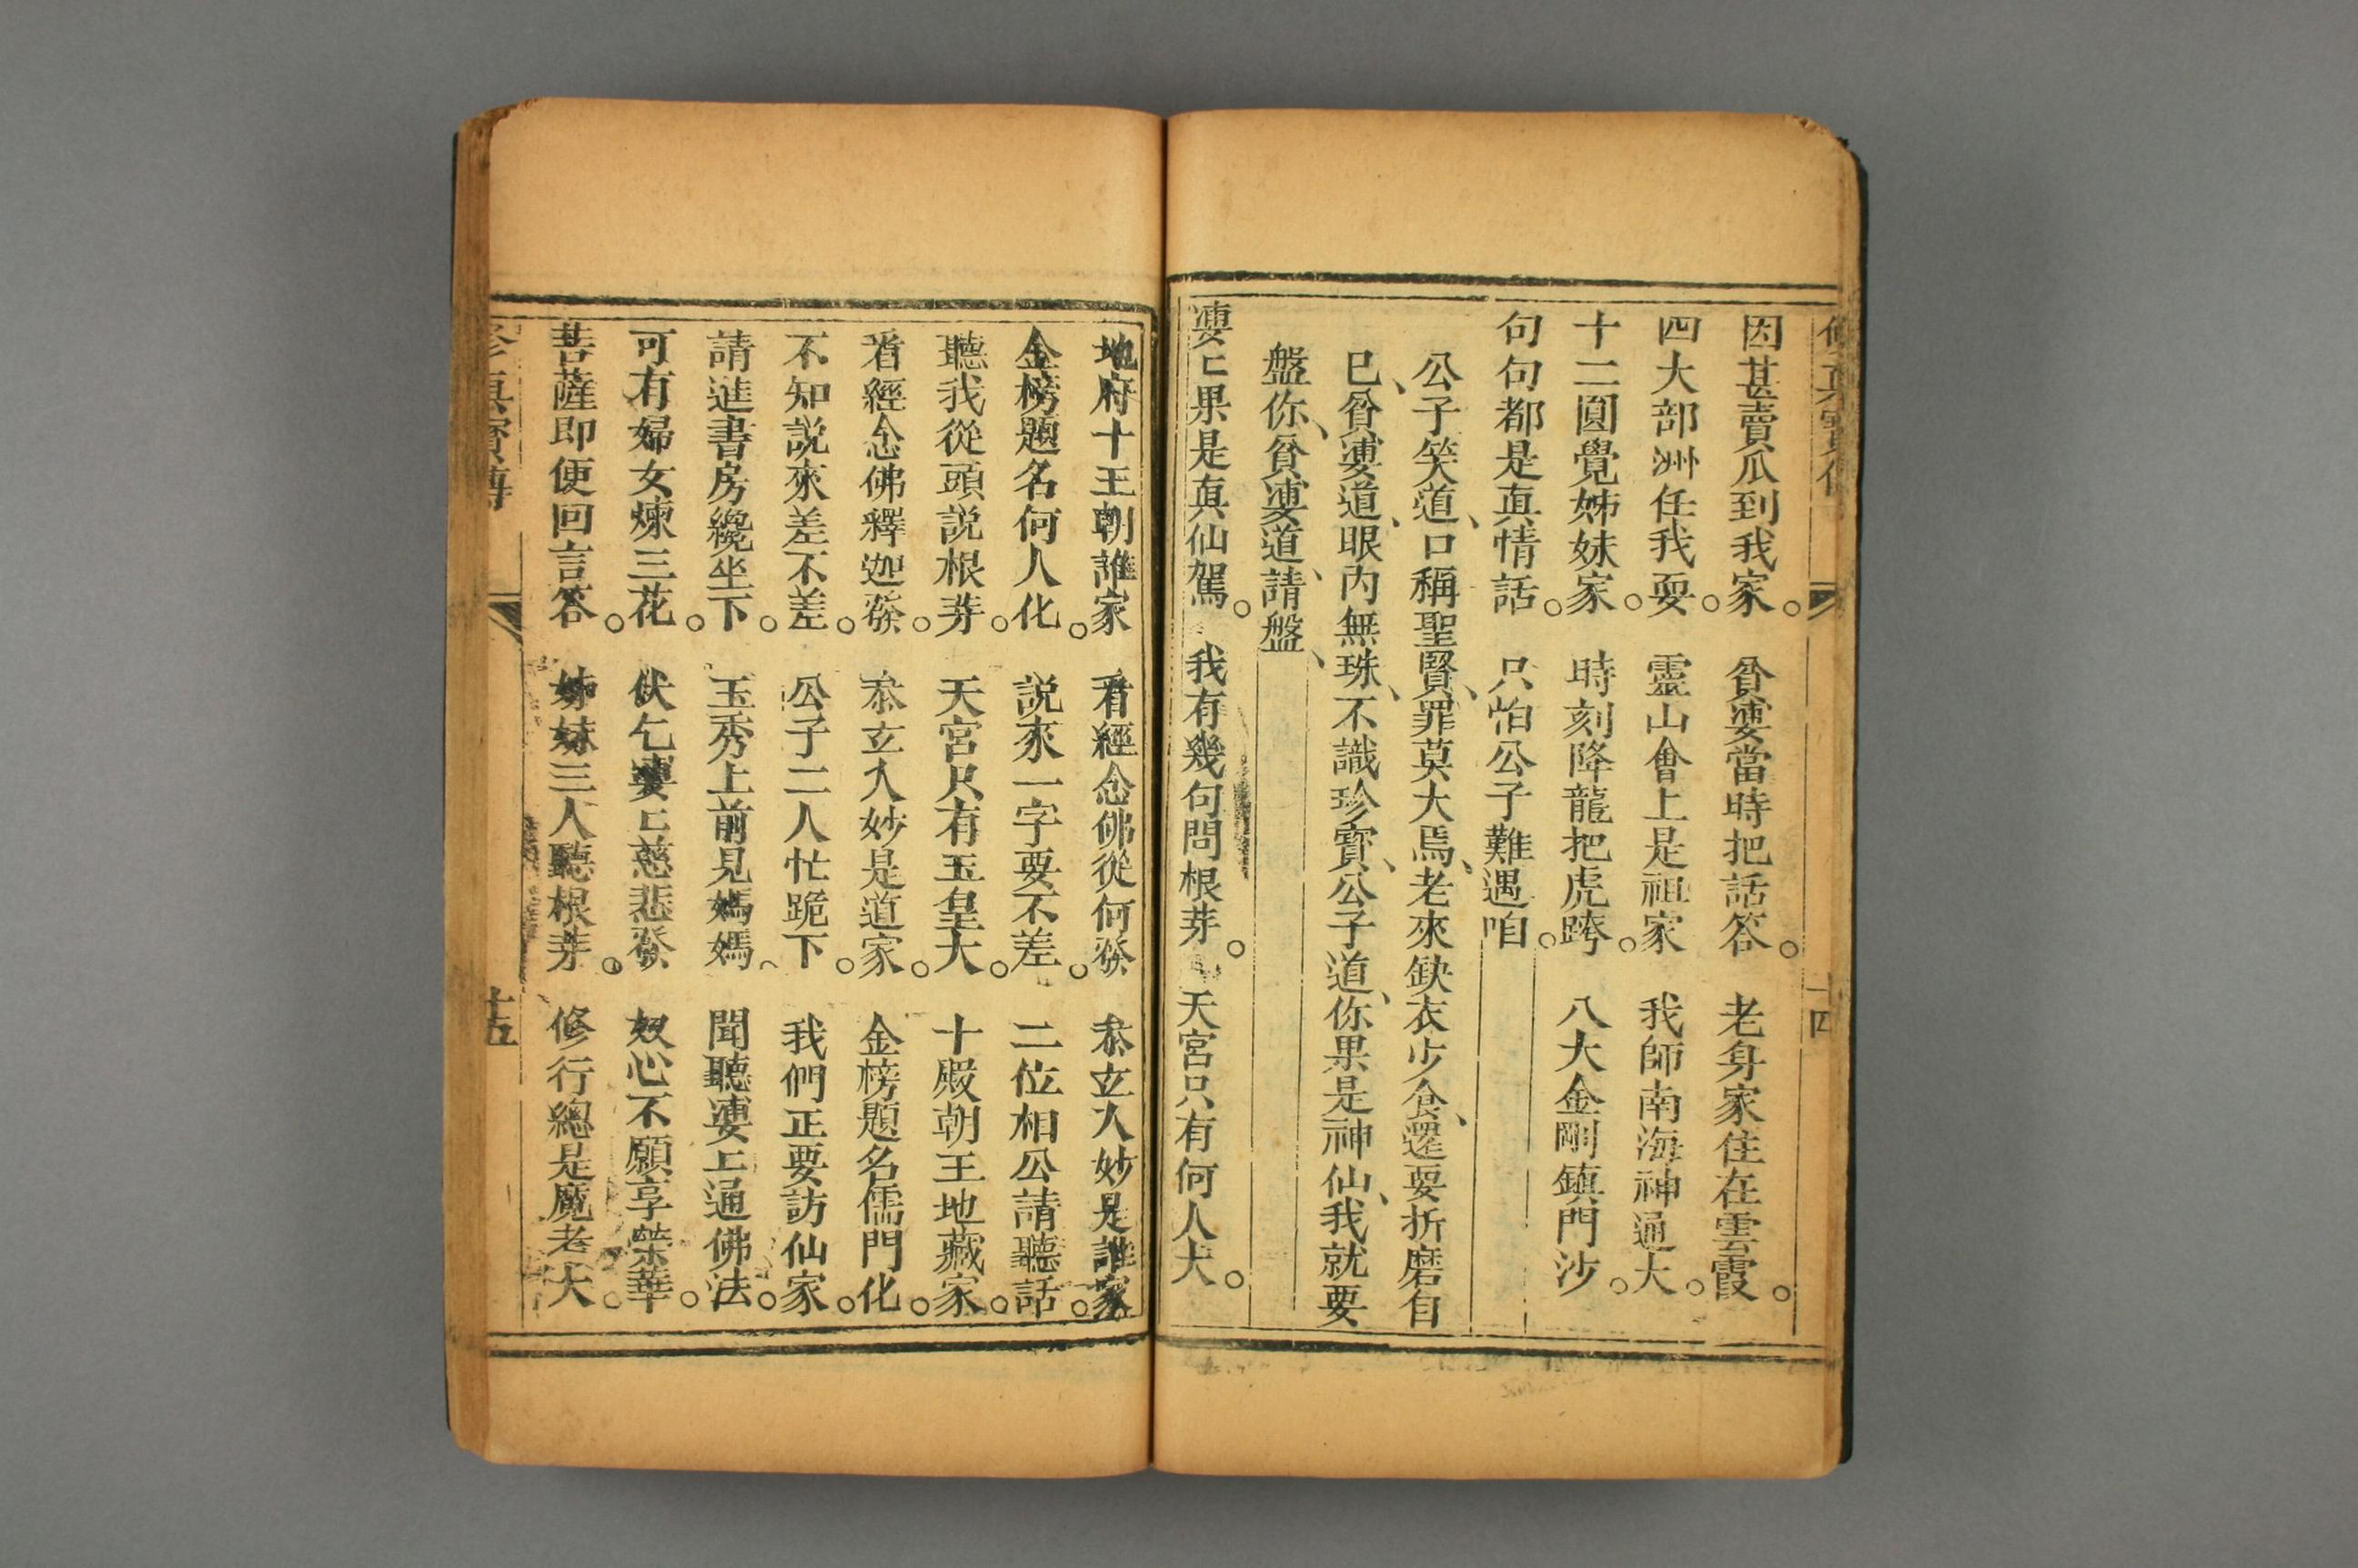 因甚賣瓜到我家。貧婆當時把話答。老身家住在雲霞。
四大部洲任我耍。靈山會上是祖家。我師南海神通大。
十二圓覺姊妹家。時刻降龍把虎跨。八大金剛鎮門沙。
句句都是真情話。只怕公子難遇咱。
公子笑道、口稱聖賢、罪莫大焉、老來缺衣少食、還要折磨自
已、貧婆道、眼內無珠、不識珍寶、公子道、你果是神仙、我就要
盤你、貧婆道、請盤、
婆匕果是真仙駕。我有幾句問根芽。天宮只有何人大。
十四
地府十王朝誰家。看經念佛從何發。叅玄入妙是誰家。
金榜題名何人化。說來一字要不差。二位相公請聽話。
聽我從頭說根芽。天宮只有玉皇大。十殿朝王地藏家。
看經念佛釋迦發。叅玄入妙是道家。金榜題名儒門化。
不知說來差不差。公子二人忙跪下。我們正要訪仙家。
請進書房纔坐下。玉秀上前見媽媽。聞聽婆匕通佛法。
可有婦女煉三花。伏乞婆匕慈悲發。奴心不願享榮華。
菩薩即便回言答。姊妹三人聽根芽。修行總是魔老大。
修真寶傳
十五